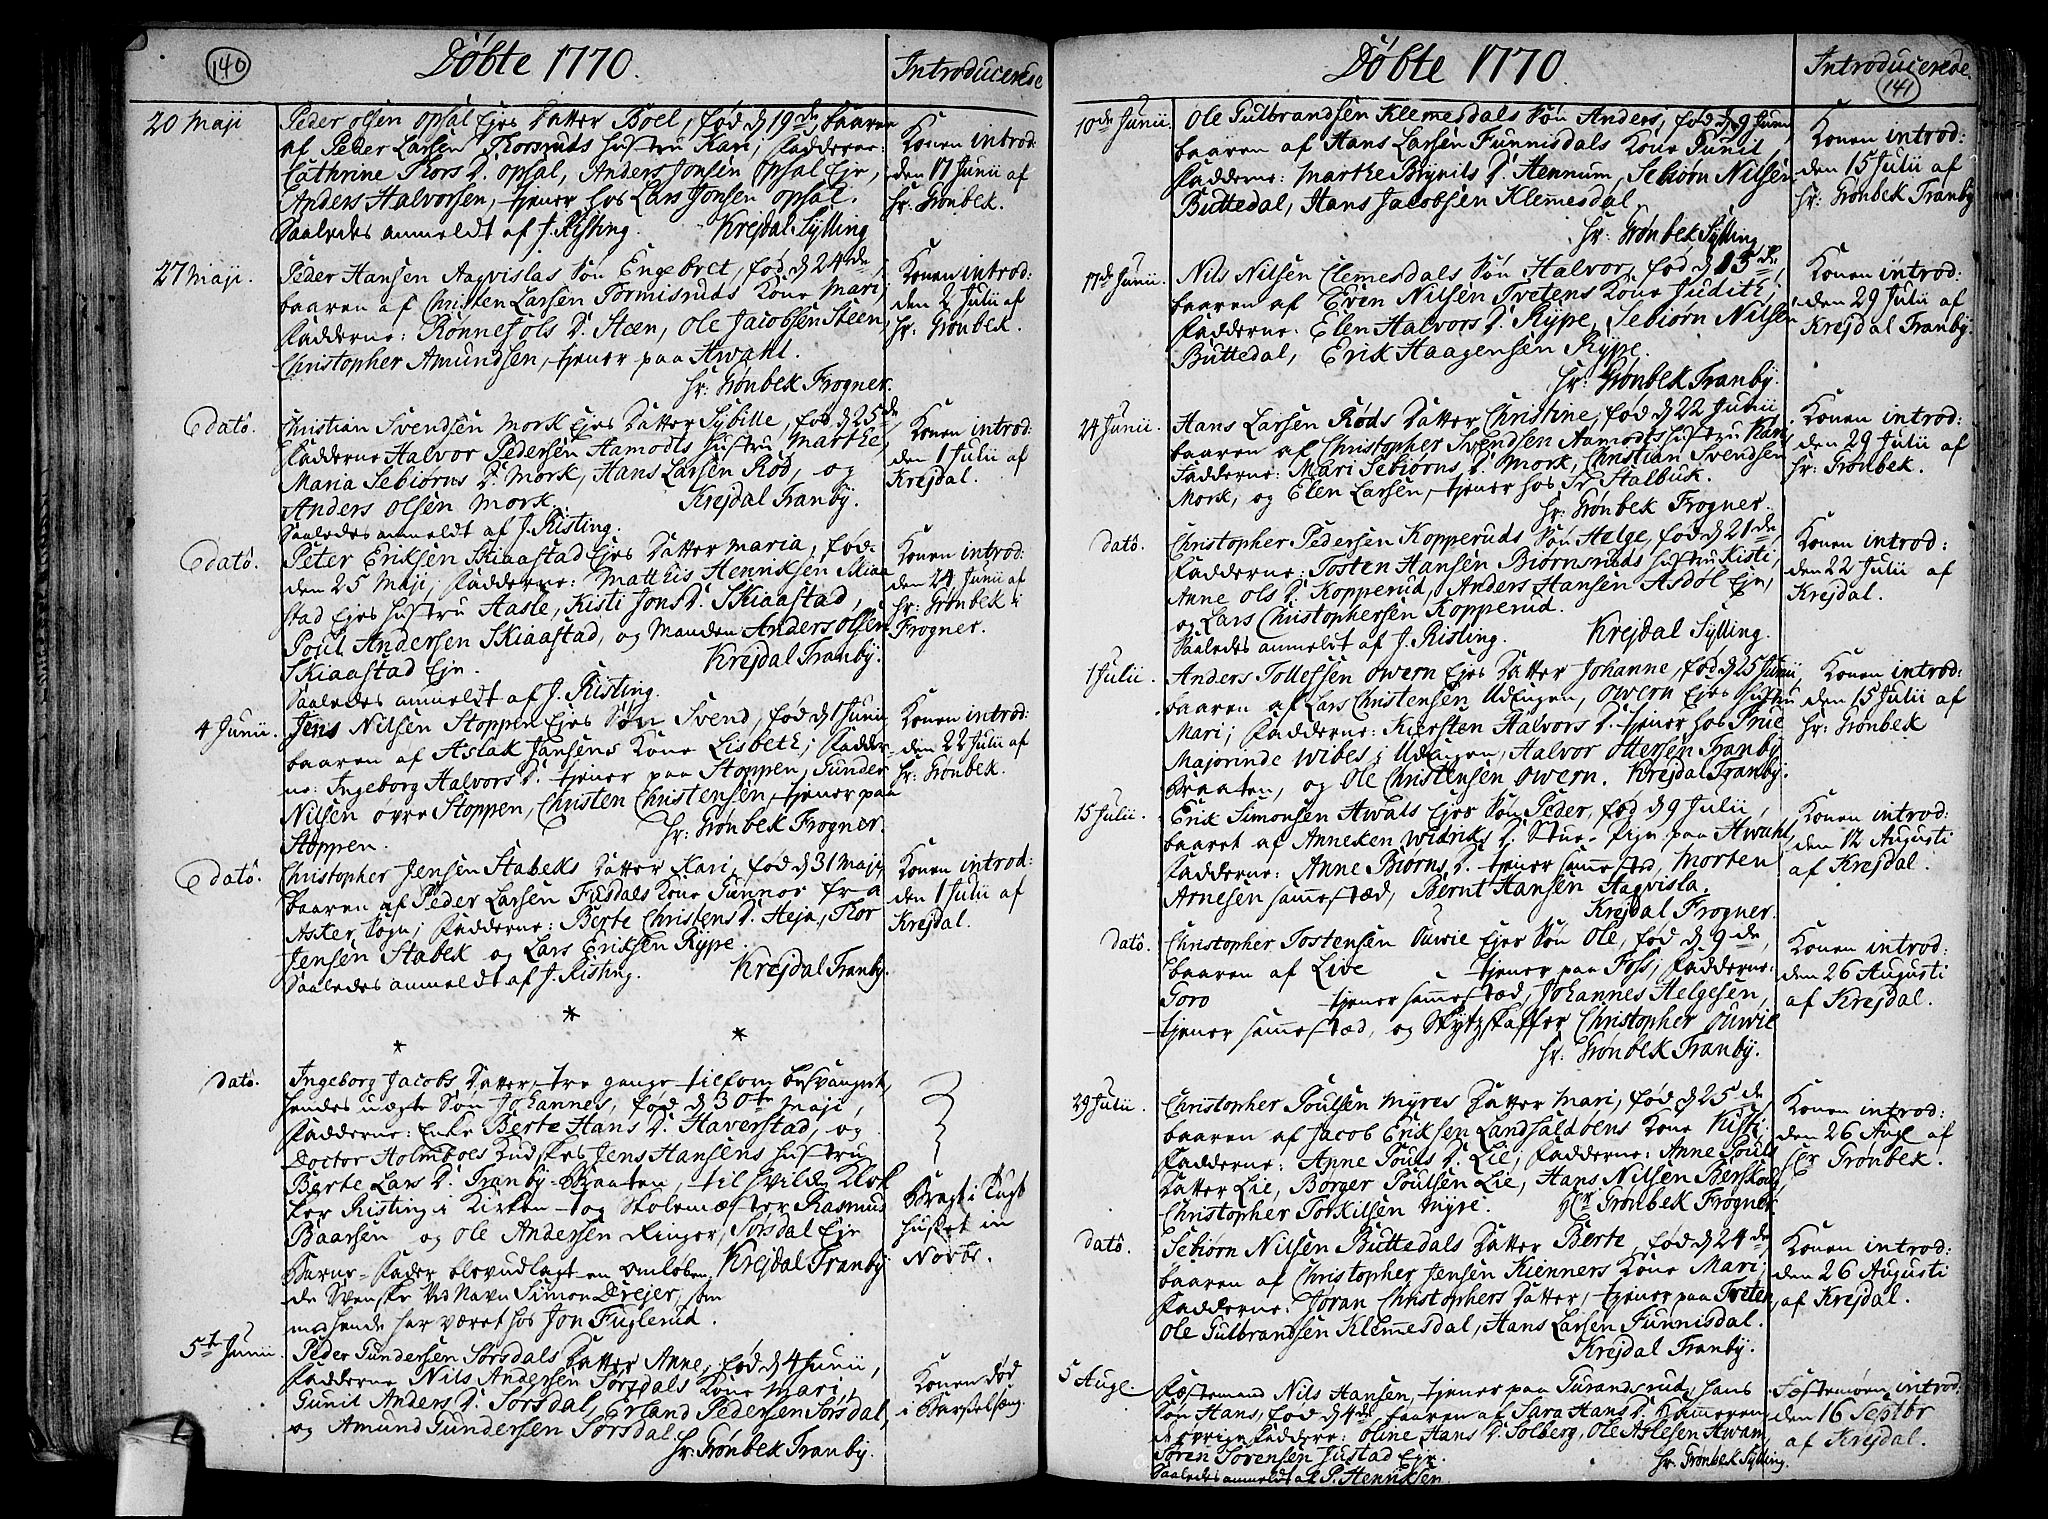 140
Døbte 1770.
Introducerede
20 Maji
Peder Olsen Opsal Ejes Datter Boel, fød d 19de, baaren
af Peder Larsen Thorsruds Hustru Kari; Fadderne:
Cathrine Thors D. Opsal, Anders Jonsen Opsal Eje,
Anders Halvorsen, tjener hos Lars Jonsen Opsal.
Saaledes anmeldt af J. Risting. Krejdal Sylling
Konen introd:
den 17 Junii af
Hr: Grønbek.
27 Maji.
Peder Hansen Aagvislas Søn Engebret, fød d 24de,
baaren af Christen Larsen Tormisruds Kone Mari;
Fadderne: Rønnes Ols D. Steen, Ole Jacobsen Steen,
Christopher Amundsen, tjener paa Hwahl.
Hr: Grønbek Frogner.
Konen introd:
den 2 Julii af
Hr: Grønbek.
dato.
Christian Svendsen Mork Ejes Datter Sybille, fød d 25de,
Fadderne Halvor Pedersen Aamodts Hustru Marthe,
Maria Sebiørns D. Mork, Hans Larsen Rød, og
Anders Olsen Mork. Krejdal Tranby.
Saaledes anmeldt af J. Risting.
Konen introd:
den 1 Julii af
Krejdal.
dato.
Peter Eriksen Skiaastad Ejes Datter Maria, fød
den 25 Maji, Fadderne: Matthis Henriksen Skiaa
stad Ejes Hustru Aasle, Kisti Jons D. Skiaastad,
Poul Andersen Skiaastad, og Manden Anders Olsen
Skiaastad Eje. Krejdal Tranby.
Saaledes anmeldt af J. Risting.
Konen introd:
den 24 Junii af
Hr: Grønbek i
Frogner.
4 Junii.
Jens Nilsen Stoppen Ejes Søn Svend, fød d 1 Junii
baaren af Aslak Jansens Kone Lisbeth; Fadder-
ne: Ingeborg Halvors D. tjener paa Stoppen, Gunder
Nilsen øvre Stoppen, Christen Christensen, tjener paa
Stoppen. Hr: Grønbek Frogner.
Konen introd:
den 22 Julii af
Hr: Grønbek.
dato.
Christopher Jensen Stabeks Datter Kari, fød d 31 Maji,
baaren af Peder Larsen Fusdals Kone Gunnor fra
Asker Sogn; Fadderne: Berte Christens D. Heja, Thor
Jensen Stabek og Lars Eriksen Rype.
Saaledes anmeldt af J. Risting. Krejdal Tranby.
Konen introd:
den 1 Julii af
Krejdal.
* * *
dato.
Ingeborg Jacobs Datter, tre gange tilforn besvangret,
hendes uægte Søn Johannes, fød d 30te Maji,
Fadderne: Enke Berte Hans D. Haverstad, og
Doctor Holmboes Kudskes Jens Hansens Hustru
Berte Lars D. Tranby-Braaten, tilhvilde Klok
ker Risting i Kirken og Skolemæster Rasmus
Baarsen og Ole Andersen Ringer, Sørsdal Eje
Barne-Fader blev udlagt en omløben Krejdal Tranby
de Svenske ved Navn Simon Drejer, som
med hende har været hos Jon Fuglerud.
Bragt i Tugt
huset in
Novbr.
5te Junii.
Peder Gundersen Sørsdals Datter Anne, fød d 4 Junii,
Fadderne Nils Andersen Sørsdals Kone Mari,
Gunil Anders D. Sørsdal, Erland Pedersen Sørsdal,
og Amund Gundersen Sørsdal.
Hr: Grønbek Tranby.
Konen død
i Barselseng.
Døbte 1770.
Introducerede
141
10de Junii.
Ole Gulbrandsen Klemesdals Søn Anders, fød d 9 Junii,
baaren af Hans Larsen Funnisdals Kone Gunil
Fadderne: Marthe Brynils D. Hennum, Sebiørn Nilsen
Buttedal, Hans Jacobsen Klemesdal.
Hr: Grønbek Sylling
Konen introd:
den 15 Julii af
Hr: Grønbek Tranby
17de Junii.
Nils Nilsen Clemesdals Søn Halvor, fød d 13de,
baaren af Even Nilsen Tvetens Kone Judith;
Fadderne: Elen Halvors D. Rype, Sebiørn Nilsen
Buttedal, Erik Haagensen Rype.
Hr: Grønbek Tranby.
Konen introd:
den 29 Julii af
Krejdal Tranby.
24 Junii.
Hans Larsen Røds Datter Christine, fød d 22 Junii
baaren af Christopher Svendsen Aamodts Hustru Kari,
Fadderne: Mari Sebiørns D. Mork, Christian Svendsen
Mork, og Elen Larsen, tjener hos Sr Stalbuk.
Hr: Grønbek Frogner.
Konen introd:
den 29 Julii af
Hr: Grønbek.
dato.
Christopher Pedersen Kopperuds Søn Helge, fød d 21de,
Fadderne: Tosten Hansen Biørnsruds Hustru Kisti,
Anne Ols D. Kopperud, Anders Hansen Asdøl Eje,
og Lars Christophersen Kopperud.
Saaledes anmeldt af J. Risting. Krejdal Sylling.
Konen introd:
den 22 Julii af
Krejdal.
1 Julii.
Anders Tollefsen Owern Ejes Datter Johanne, fød d 25 Junii,
baaren af Lars Christensen Udengen, Owern Ejes Hustru
Mari; Fadderne: Kiersten Halvors D. tjener hos Frue
Majorinde Wibes i Udengen, Halvor Ottersen Tranby
Braaten, og Ole Christensen Owern. Krejdal Tranby.
Konen introd:
den 15 Julii af
Hr: Grønbek
15 Julii.
Erik Simonsen Hwals Ejes Søn Peder, fød d 9 Julii,
baaret af Anneken Widriks D. Stue-Pige paa Hwahl,
Fadderne: Anne Biørns D. tjener sammested, Morten
Arnesen sammested, Bernt Hansen Aagvisla.
Krejdal Frogner.
Konen introd:
den 12 Augusti
af Krejdal.
dato.
Christopher Tostensen Ouwie Ejes Søn Ole, fød d 9de,
baaren af Live tjener paa Foss; Fadderne:
Goro tjener sammested, Johannes Helgesen,
tjener sammested, og Skydsskaffer Christopher Ouwie
Hr: Grønbek Tranby.
Konen introd:
den 26 Augusti
af Krejdal.
29 Julii.
Christopher Poulsen Myres Datter Mari, fød d 25de,
baaren af Jacob Eriksen Landfaldøens Kone Kisti
Fadderne: Anne Pouls D. Lie; Fadderne: Anne Pouls
Datter Lie, Børger Poulsen Lie, Hans Nilsen Berskoug
Christopher Torkilsen Myre. Hr Grønbek Frogner.
Konen introd:
den 26 Augl af
Hr Grønbek.
dato.
Sebiørn Nilsen Buttedals Datter Berte, fød d 24de,
baaren af Christopher Jensen Kienners Kone Mari;
Fadderne: Joran Christophers Datter, tjener paa Tveten,
Ole Gulbrandsen Klemesdal, Hans Larsen Funnisdal.
Krejdal Tranby.
Konen introd:
den 26 Augusti
af Krejdal.
5 Augl.
Fæstemand Nils Hansen, tjener paa Gurandsrud, hans
Søn Hans, fød d 4de baaren af Sara Hans D. Kammeren
de øvrige Faddere: Oline Hans D. Solberg, Ole Aslesen Hwam,
Søren Sørensen Justad Eje.
Saaledes anmeldt af P. Henriksen Hr. Grønbek Sylling.
Fæstemøen introd:
den 16 Septbr
af Krejdal.